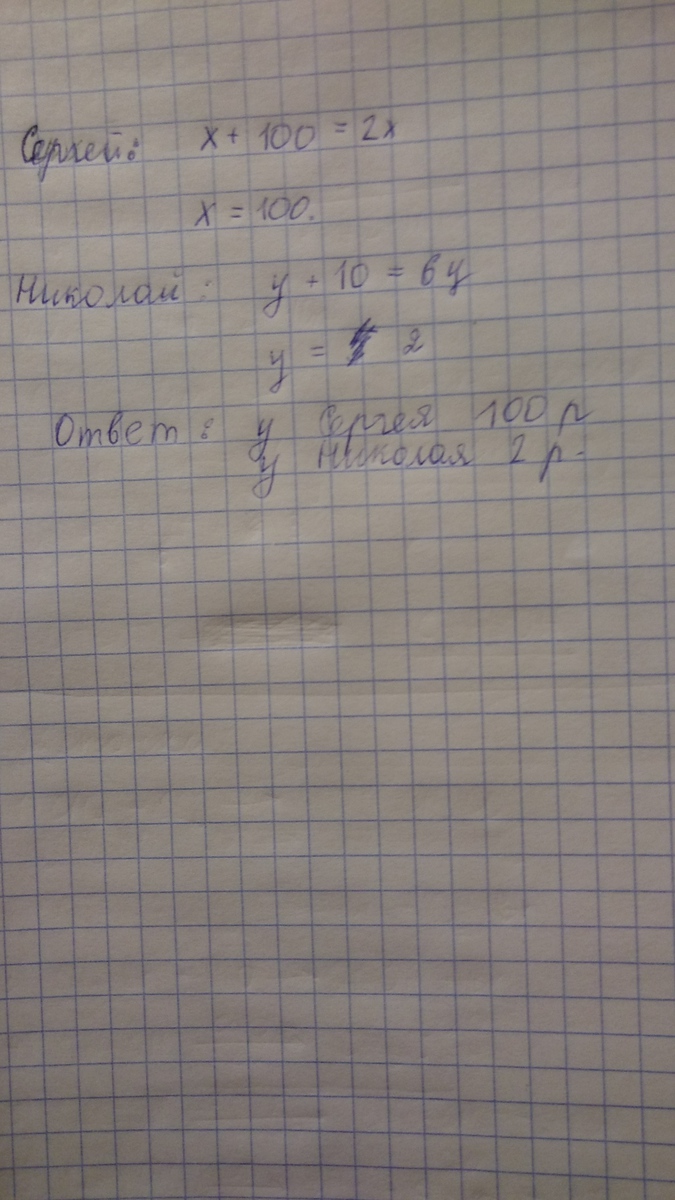 Сергей: x + 100 = 2x
x = 100.
Николай: y + 10 = 6y
y = 2
Ответ: у Сергея 100 р
у Николая 2 р.